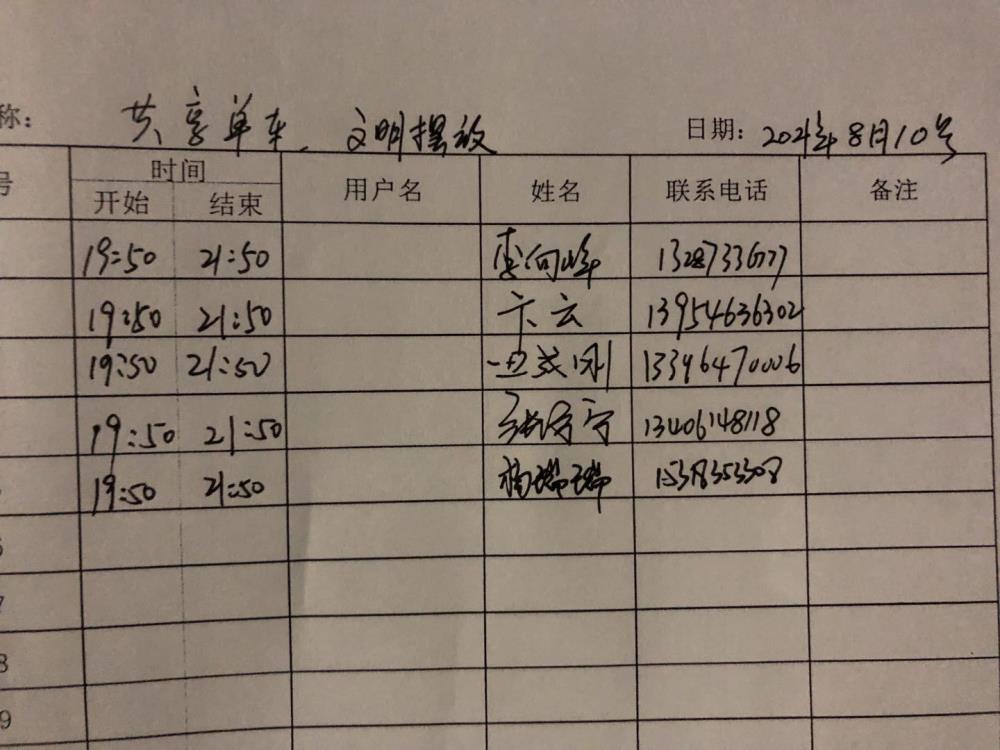 称: 共享单车、文明摆放 日期: 2021年8月10号
号 时间 用户名 姓名 联系电话 备注
开始 结束
19:50 21:50 李向峰
19:50 21:50 卞云 13954636302
19:50 21:50 13396470006
19:50 21:50 13406148118
19:50 21:50 杨瑞瑞 15318353308
6
7
8
9